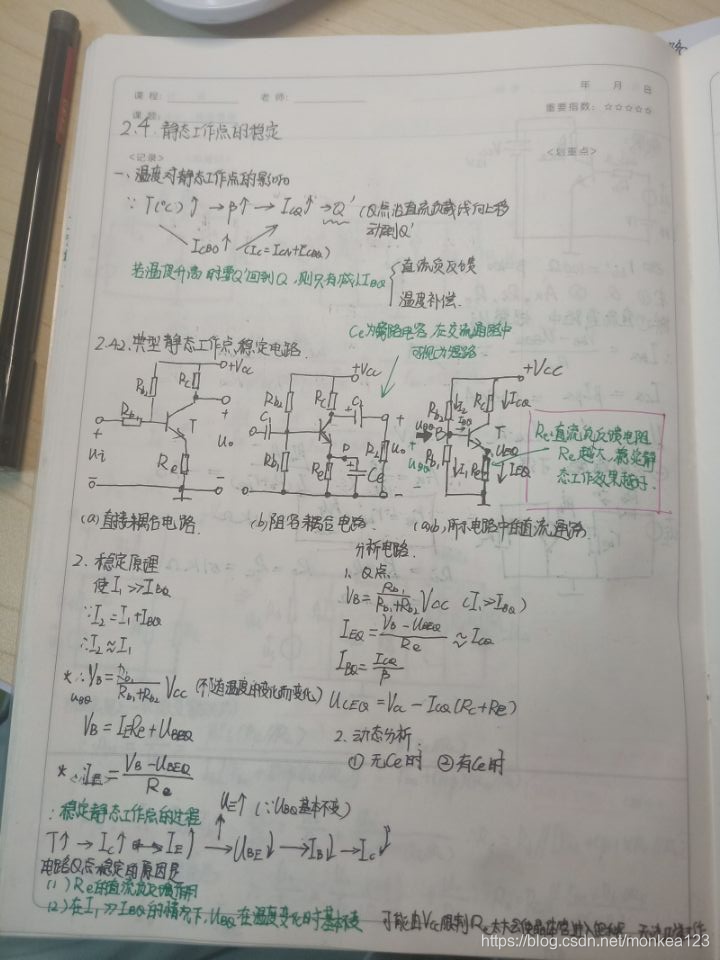 年 月 日
课程: 老师:
重要指数: ☆☆☆☆☆
课题:
2.4. 静态工作点的稳定
<记录> <划重点>
一、温度对静态工作点的影响
∵ T(℃)↑ → β↑ → I_CQ↑ → Q' (Q点沿直流负载线向上移
动到Q'
I_CBO↑ (I_C=I_CN+I_CBO)
若温度升高时要Q'回到Q,则只有减小I_BQ { 直流负反馈
温度补偿.
Ce为旁路电容,在交流通路中
可视为短路
2.4.2. 典型静态工作点稳定电路
+Vcc +Vcc +VCC
Rb1 Rc Rb2 Rc C1 Rb2 I2 Rc I_CQ
Rb2 T Ui Uo Re
Rb1 Re Ce RL Uo
U_BQ B I_BQ T U_EQ Rb1 I1 Re I_EQ
Re:直流负反馈电阻
Re越大,稳定静
态工作效果越好.
(a)直接耦合电路. (b)阻容耦合电路. (a)(b)所示电路中的直流通路.
分析电路.
2. 稳定原理
使I1>>I_BQ
∵I2=I1+I_BQ
∴I2≈I1
* ∴V_B=Rb1/(Rb1+Rb2) Vcc (不随温度的变化而变化)
U_BQ
V_B = I_E Re+U_BEQ
* ∴I_E = (V_B-U_BEQ)/Re
1. Q点
V_B = Rb1/(Rb1+Rb2) VCC (I1>>I_BQ)
I_EQ = (V_B-U_BEQ)/Re ≈ I_CQ
I_BQ = I_CQ/β
U_CEQ = Vcc - I_CQ(Rc+Re)
2. 动态分析.
① 无Ce时 ② 有Ce时
∴稳定静态工作点的过程 U_E↑ (∵U_BQ基本不变)
T↑ → I_C↑ → I_E↑ → U_BE↓ → I_B↓ → I_C↓
电路Q点稳定的原因是
(1) Re的直流负反馈作用
(2) 在I1>>I_BQ的情况下,U_BQ在温度变化时基本不变
可能由Vcc限制Re太大会使晶体管进入
https://blog.csdn.net/monkea123